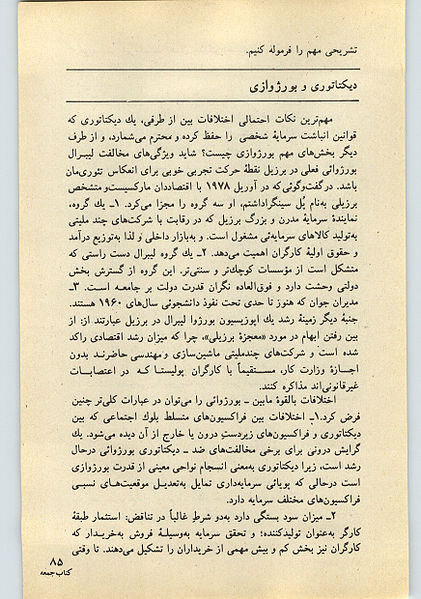 تشریحی مهم را فرموله کنیم.
دیکتاتوری و بورژوازی
مهم‌ترین نکات احتمالی اختلافات بین از طرفی، یك دیکتاتوری که
قوانین انباشت سرمایهٔ شخصی را حفظ کرده و محترم می‌شمارد، و از طرف
دیگر بخش‌های مهم بورژوازی چیست؟ شاید ویژگی‌های مخالفت لیبرال
بورژوائی فعلی در برزیل نقطهٔ حرکت تجربی خوبی برای انعکاس تئوری‌مان
باشد. در گفت‌وگوئی‌که در آوریل ۱۹۷۸ با اقتصاددان مارکسیست‌و‌متشخص
برزیلی به‌نام پُل سینگر‌داشتم، او سه گروه را مجزا می‌کرد. ۱ـ یك گروه،
نمایندهٔ سرمایهٔ مدرن و بزرگ برزیل که در رقابت با شرکت‌های چند ملیتی
به‌تولید کالاهای سرمایه‌ئی مشغول است. و به‌بازار داخلی و لذا به‌توزیع درآمد
و حقوق اولیهٔ کارگران اهمیت می‌دهد. ۲ـ یك گروه لیبرال دست راستی که
متشکل است از مؤسسات کوچك‌تر و سنتی‌تر. این گروه از گسترش بخش
دولتی وحشت دارد و فوق‌العاده نگران قدرت دولت بر جامعه است. ۳ـ
مدیران جوان که هنوز تا حدی تحت نفوذ دانشجوئی سال‌های ۱۹۶۰ هستند.
جنبهٔ دیگر زمینهٔ رشد یك اپوزیسیون بورژوا لیبرال در برزیل عبارتند از: از
بین رفتن ابهام در مورد «معجزهٔ برزیلی»، چرا که میزان رشد اقتصادی راکد
شده است و شرکت‌های چندملیتی ماشین‌سازی و مهندسی حاضرند بدون
اجازهٔ وزارت کار، مستقیماً با کارگران پولیستا که در اعتصابات
غیرقانونی‌اند مذاکره کنند.
اختلافات بالقوهٔ مابین ـ بورژوائی را می‌توان در عبارات کلی‌تر چنین
فرض کرد. ۱ـ اختلافات بین فراکسیون‌های متسلط بلوك اجتماعی که بین
دیکتاتوری و فراکسیون‌های زیردستِ درون یا خارج از آن دیده می‌شود. یك
گرایش درونی برای برخی مخالفت‌های ضد ـ دیکتاتوری بورژوائی درحال
رشد است، زیرا دیکتاتوری به‌معنی انسجام نواحی معینی از قدرت بورژوازی
است درحالی که پویائی سرمایه‌داری تمایل به‌تعدیل موقعیت‌های نسبی
فراکسیون‌های مختلف سرمایه دارد.
۲ـ میزان سود بستگی دارد به‌دو شرطِ غالباً در تناقض: استثمار طبقهٔ
کارگر به‌عنوان تولیدکننده؛ و تحقق سرمایه به‌وسیلهٔ فروش به‌خریدار که
کارگران نیز بخش کم و بیش مهمی از خریداران را تشکیل می‌دهند. تا وقتی
۸۵
کتاب‌جمعه